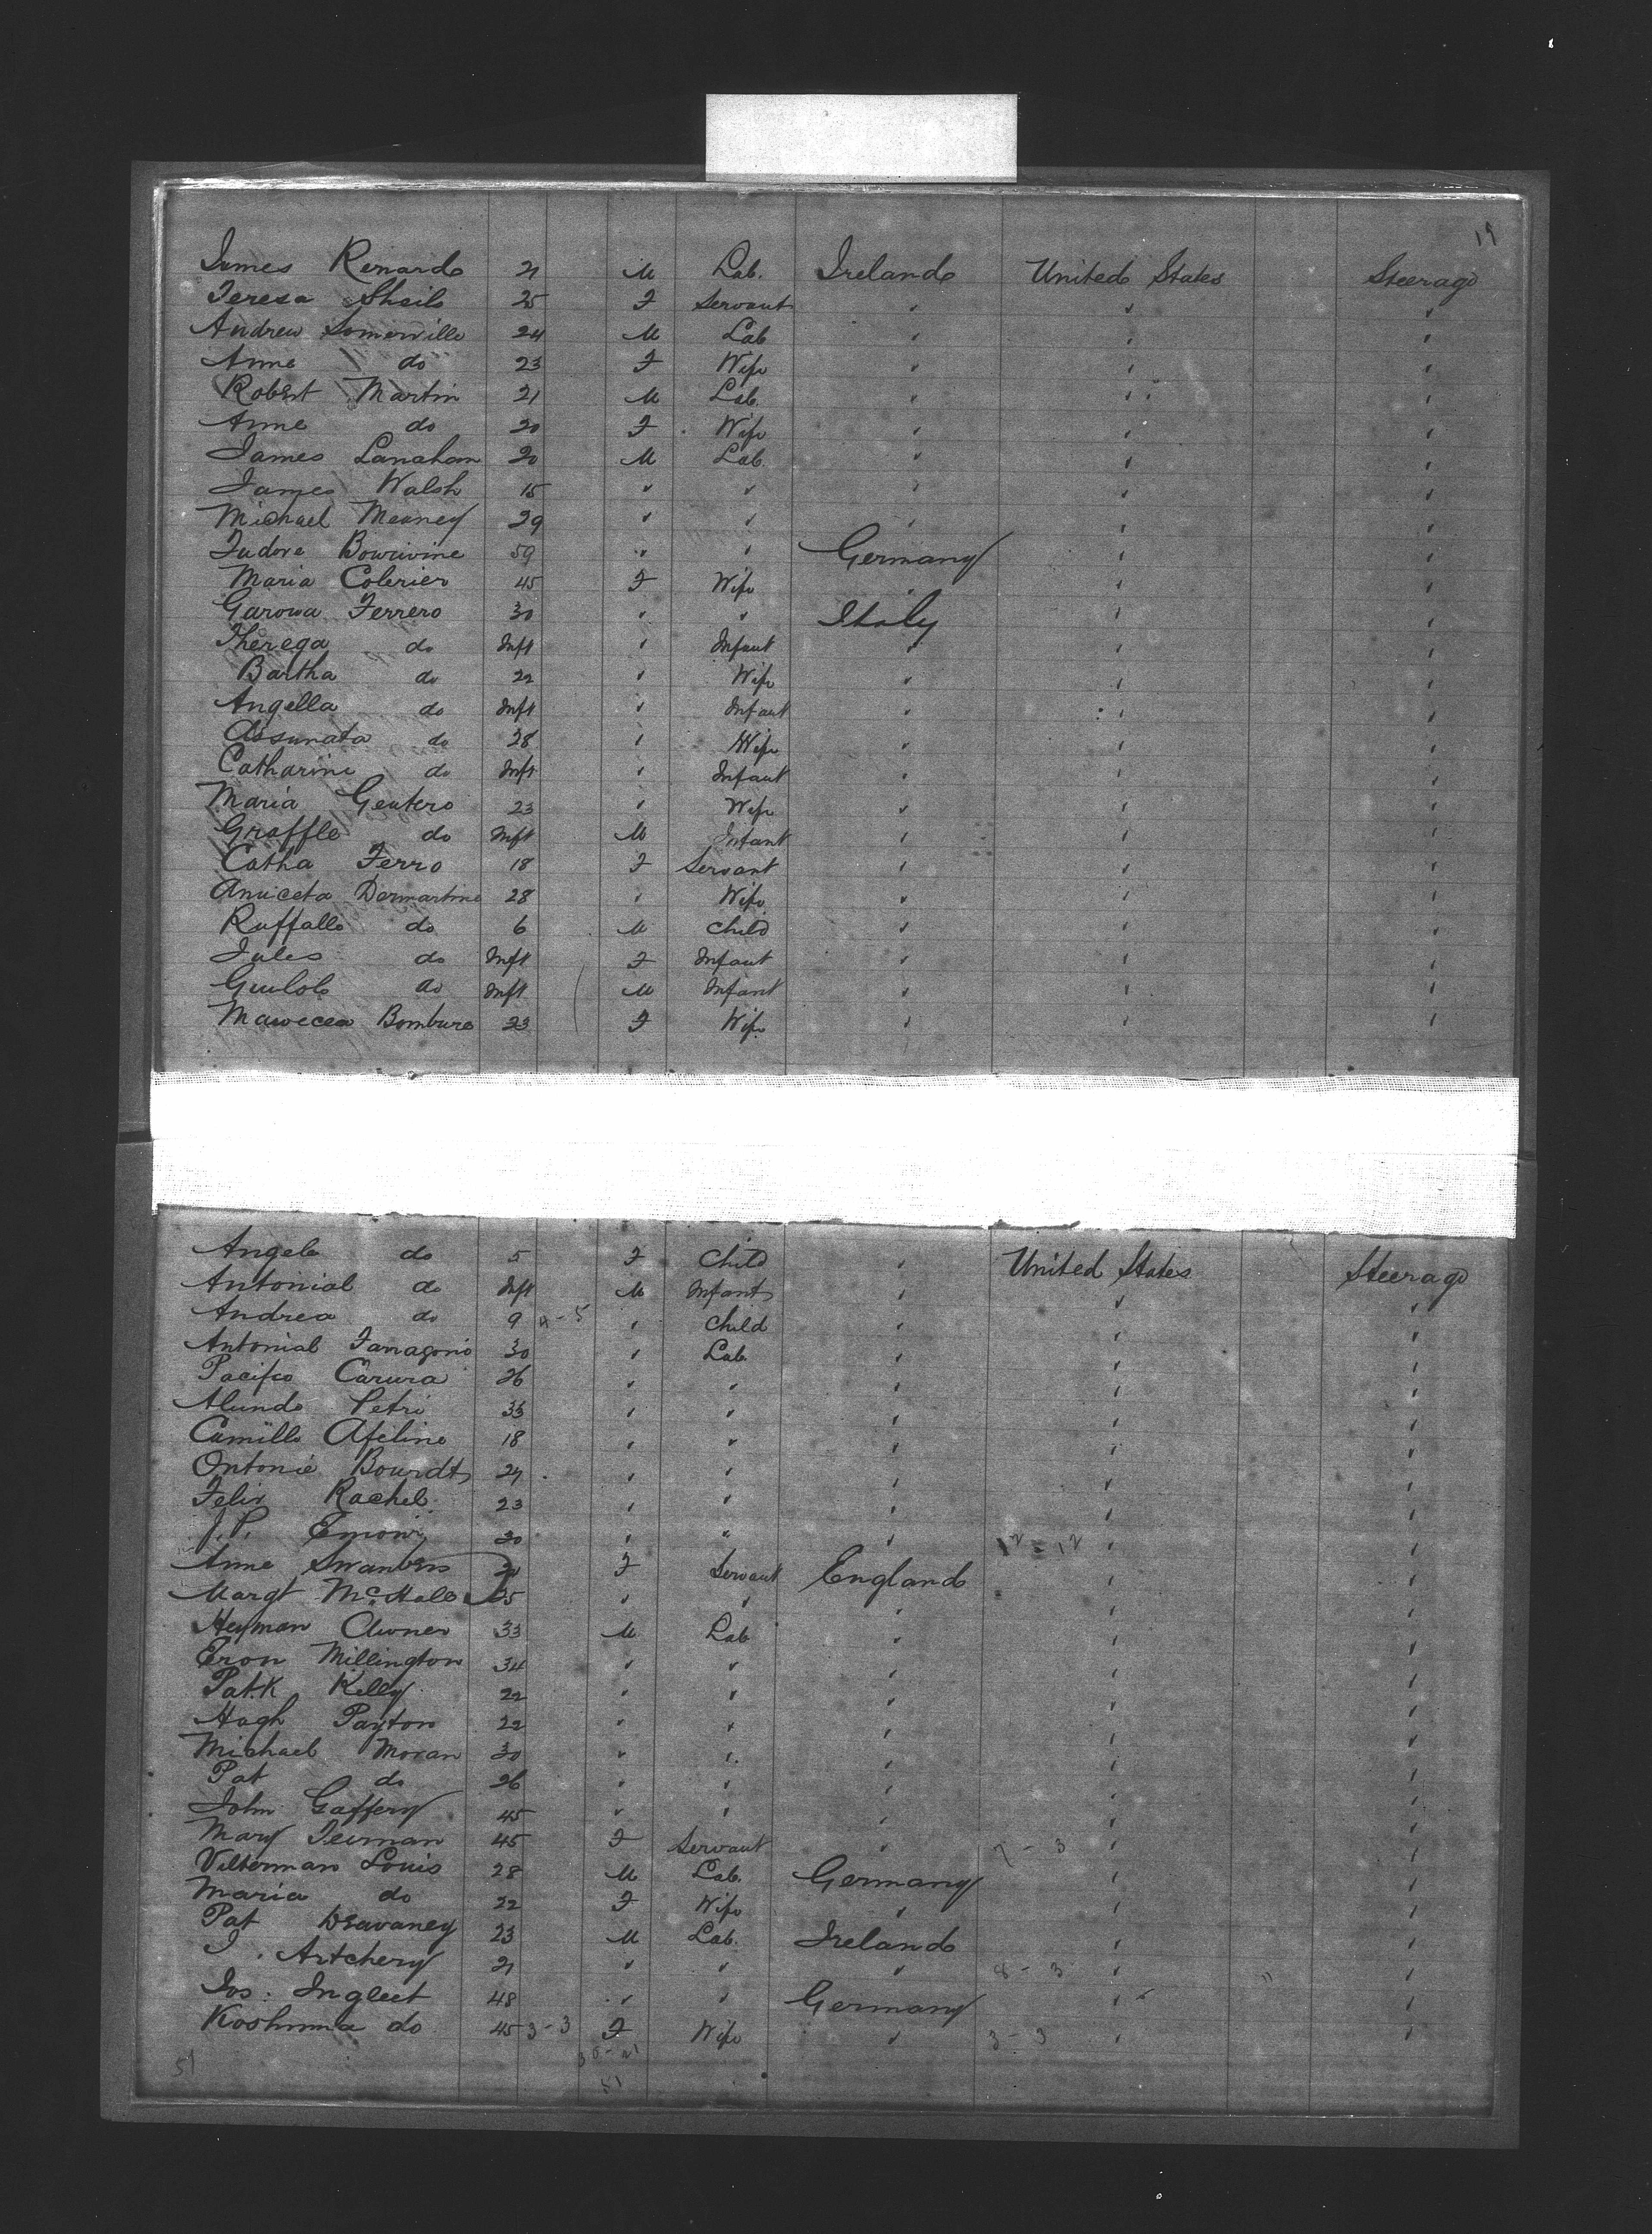 19
James Renards 21 M Lab. Ireland United States Steerage
Teresa Sheils 25 F Servant " " "
Andrew Somerville 24 M Lab " " "
Anne do 23 F Wife " " "
Robert Martin 21 M Lab. " " "
Anne do 20 F Wife " " "
James Lanahan 20 M Lab " " "
James Walsh 15 " " " " "
Michael Meaney 29 " " " " "
59 " " Germany " "
Maria Colerier 45 F Wife " "
Garowa Ferrero 30 " " Italy " "
Therega do Inft " Infant " " "
Bartha do 22 " Wife " " "
Angella do Inft " Infant " " "
Assunata do 28 " Wife " " "
Catharine do Inft " Infant " " "
Maria Gentero 23 " Wife " " "
Graffle do Inft M Infant " " "
Catha Ferro 18 F Servant " " "
Aniceta Dermartine 28 " Wife " " "
Ruffallo do 6 M Child " " "
Jules do Inft F Infant " " "
do Inft M Infant " " "
Bombure 23 F Wife " " "
Angela do 5 F Child " United States Steerage
Antonial do Inft M Infant " " "
Andrea do 9 " Child " " "
Antonial Farragoni 30 " Lab. " " "
Pacifico Carura 26 " " " " "
Alundo Petri 33 " " " " "
Camillo Afeline 18 " " " " "
Ontonie Bourdts 24 " " " " "
Felix Rachel 23 " " " " "
J. P. 30 " " " "
Anne Swanbers F Servant England " "
Margt McHale 25 " " " " "
Heyman 33 M Lab " " "
Eron Millington 34 " " " " "
Pat.k Kelly 22 " " " " "
Hugh Payton 22 " " " " "
Michael Moran 30 " " " " "
Pat do 26 " " " " "
John Gaffery 45 " " " " "
Mary 45 F Servant " 7-3 " "
Vilterman Louis 28 M Lab. Germany " "
Maria do 22 F Wife " " "
Pat Devaney 23 M Lab. Ireland " "
J. Artchery 21 " " " 8-3 " "
Jos: Ingleet 48 " " Germany " "
Koshmina do 45 3-3 F Wife " 3-3 " "
51 30-21
51